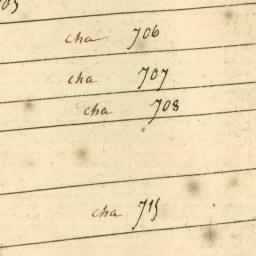 cha 706
cha 707
cha 708
cha 715